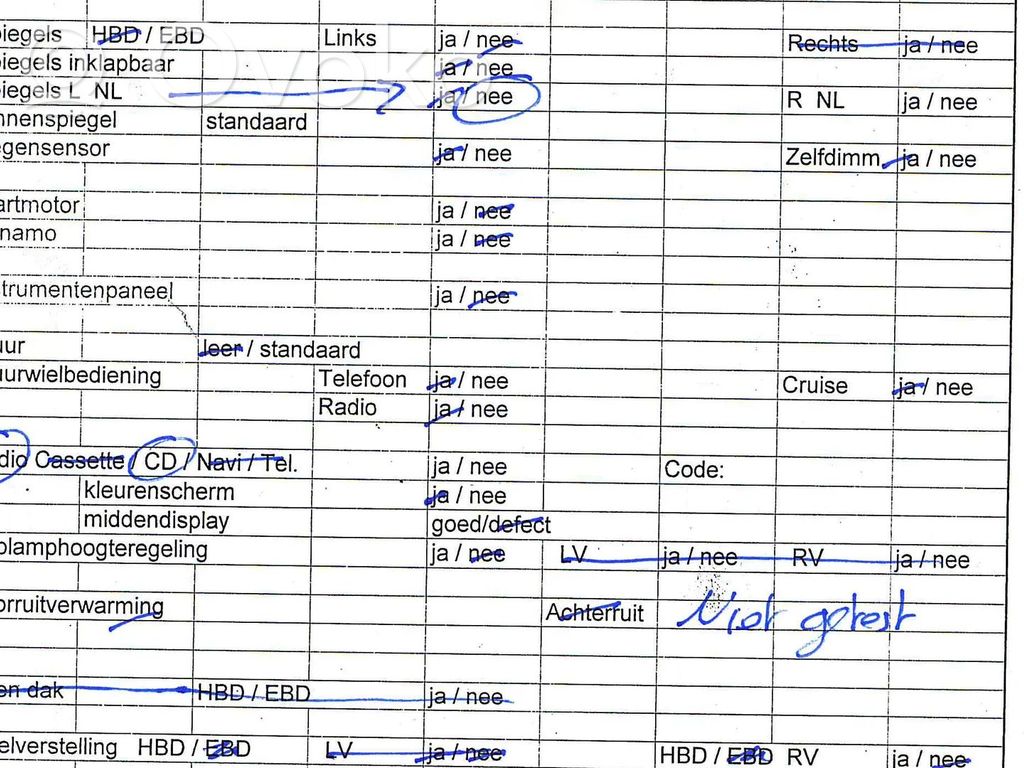 iegels HBD / EBD Links ja / nee Rechts ja / nee
iegels inklapbaar ja / nee
iegels L NL ja / nee R NL ja / nee
nnenspiegel standaard
egensensor ja / nee Zelfdimm. ja / nee
artmotor ja / nee
namo ja / nee
trumentenpaneel ja / nee
uur leer / standaard
uurwielbediening Telefoon ja / nee Cruise ja / nee
Radio ja / nee
dio Cassette / CD / Navi / Tel. ja / nee Code:
kleurenscherm ja / nee
middendisplay goed/defect
plamphoogteregeling ja / nee LV ja / nee RV ja / nee
orruitverwarming Achterruit Niet getest
en dak HBD / EBD ja / nee
elverstelling HBD / EBD LV ja / nee HBD / EBD RV ja / nee